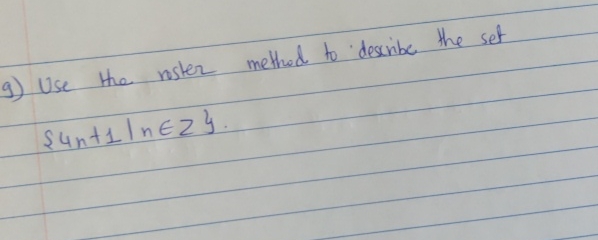 g) Use the roster method to describe the set
{4n+1 | n ∈ Z}.